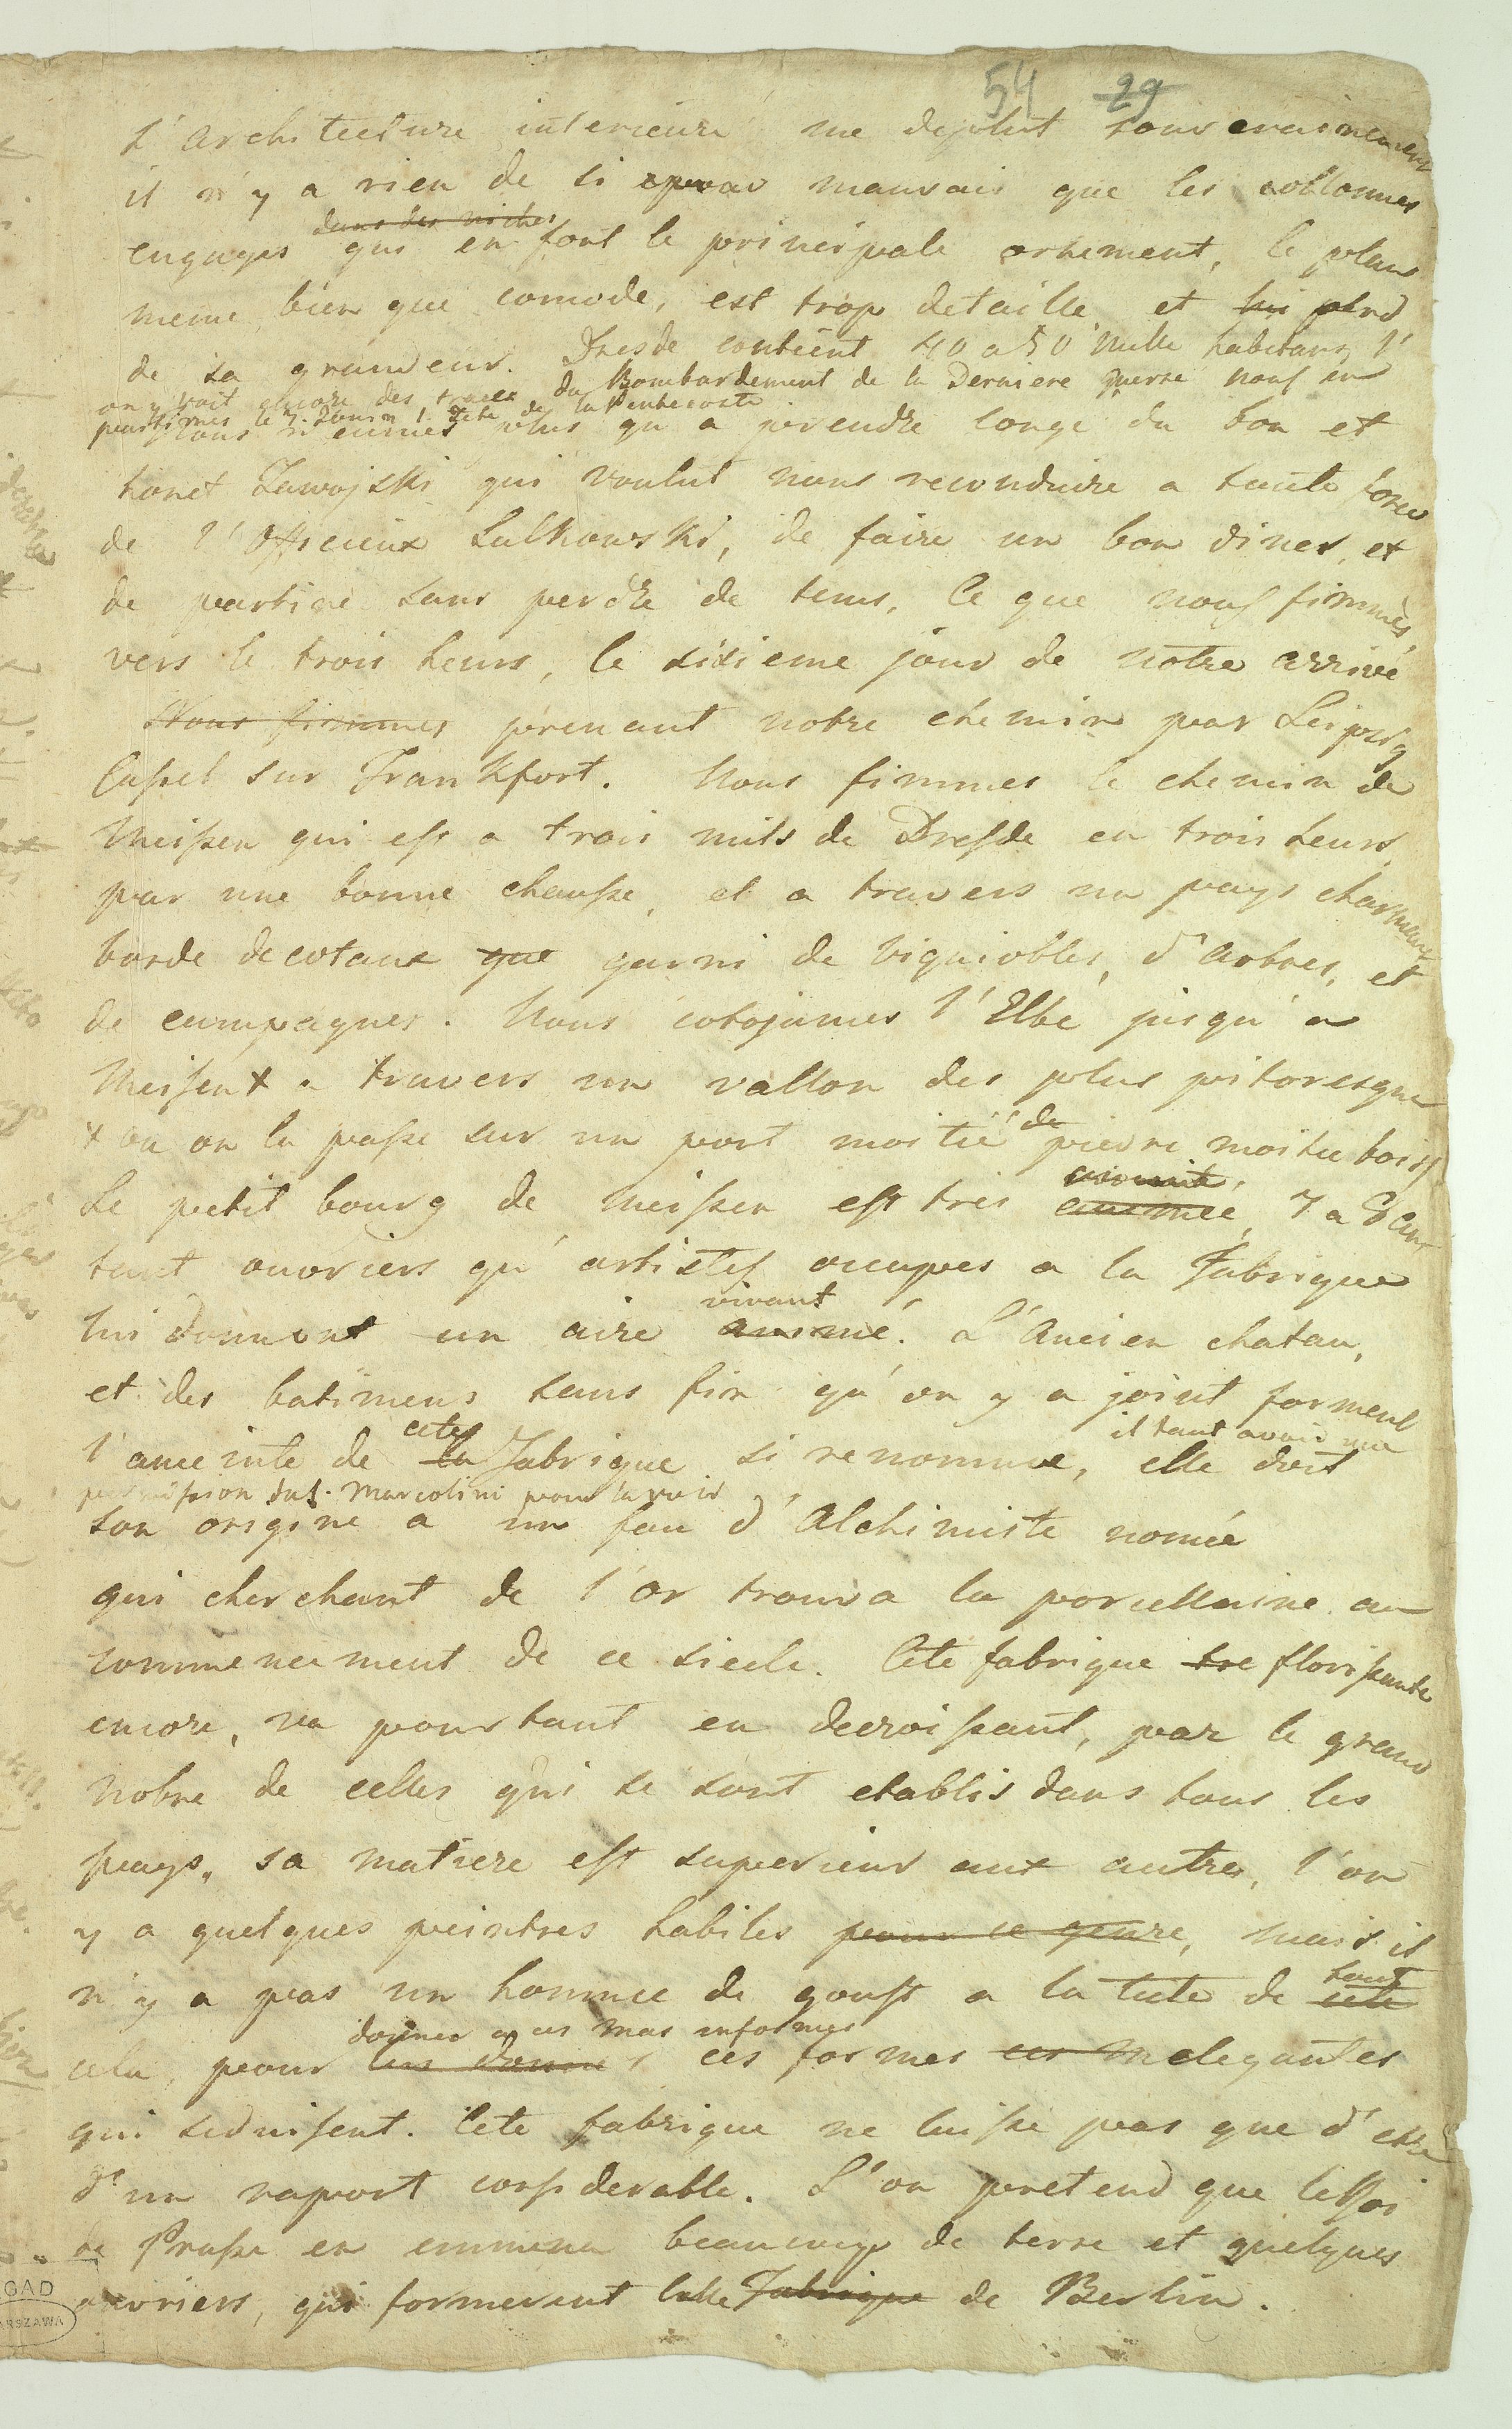 54 29
L'architecture interieure me deplut souverainement
il n'y a rien de si mauvais que les collonnes
dans des niches
engages qui en font le principale ornement, le plan
meme, bien que comode, est trop detaille et lui perd
de sa grandeur. Dresde contient 40 a 50 Mille habitans, l'
on y voit encore des traces du Bombardement de la Derniere guerre nous en
partimes le 7. Jouin 1. Fete de la Pentecoste
Nous n'eumes plus qu a prendre conge du bon et
honet Zawojski qui voulut nous reconduire a toute force
de l'officieux Sulkowski, de faire un bon diner, et
de partire sans perdre de tems, Ce que nous fimmes,
vers le trois heurs, le sisieme jour de notre arrivé
Nous fimmes prenant notre chemin par Leipsig
Cassel sur Frankfort. Nous fimmes le chemin de
Meissen qui est a trois mils de Dresde en trois heurs,
par une bonne chausse, et a travers un pays charmant
borde de cotaux que garni de vigniobles, d'arbres, et
de campagnes. Nous cotojames l'Elbe jusqu'a
Meissen + a travers un vallon des plus pitoresque
+ ou on la passe sur un pont moitié de pierre moitie bois
Le petit bourg de Meissen est tres animée, 7 a 8 cent
tant ouvriers qu'artistes occupes a la Fabrique
vivant
lui donnent un aire animé. L'Ancien chatau,
et des batimens sans fin qu'on y a joint forment
cete il faut avoir une
l'anceinte de la Fabrique si renomme, elle doit
permission du C. Marcolini pour la voir
son origine a un fou d'Alchimiste nomée
qui cherchant de l'or trouva la porcellaine au
commencement de ce siecle. Cete fabrique tre florissante
encore, va pourtant en decroissant, par le grand
nobre de celles qui se sont etablis dans tous les
pays. sa matiere est superieur aux autres, l'on
y a quelques peintres habiles pour ce genre, mais il
tout
n'y a pas un homme de goust a la tete de cete
donner a ces mas informes
cela, pour les donner ces formes elegantes
qui seduisent. Cete fabrique ne laisse pas que d'etre
d'un raport considerable. L'on pretend que le Roi
de Prusse en emmena beaucoup de terre et quelques
ouvriers, qui formerent celle Fabrique de Berlin.